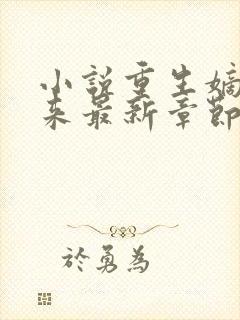 小说重生嫡
来最新章节
於勇為